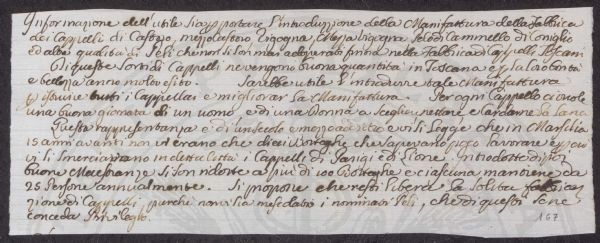 Informazione dell'utile si apportare l'introduzione della Manifattura della Fabbrica
dei Cappelli di Castoro, mezzo castoro Vigogna, e Mezza Vigogna Pelo di Cammello di Coniglio
ed altre qualità di Peli che non si son mai adoperati finora nella Fabbrica di Cappelli Toscani
Di queste Sorti di Cappelli ne vengono buona quantità in Toscana e p. la la bontà
e bellezza anno molto esito. Sarebbe utile l'introdurre tale Manifattura
p istruire tutti i Cappellai e migliorar la Manifattura. Per ogni Cappello ci vuole
una buona giornata di un uomo, e di una Donna a scegliere nettare e Cardarne la Lana
Questa rappresentanza è di un secolo e mezzo addietro e vi si Legge che in Marsilia
15 anni avanti non vi erano che dieci Botteghe che sapevano poco lavorare e
vi si smerciavano in detta Città i Cappelli di Parigi e di Lione. Introdotte dipoi
buone Maestranze si son ridotte a più di 100 Botteghe e ciascuna mantiene da
25 Persone annualmente. Si propone che resti libera la solita
zione di Cappelli, purchè non vi sia mescolato i nominati Peli, che di questi se ne
conceda Privilegio.
167